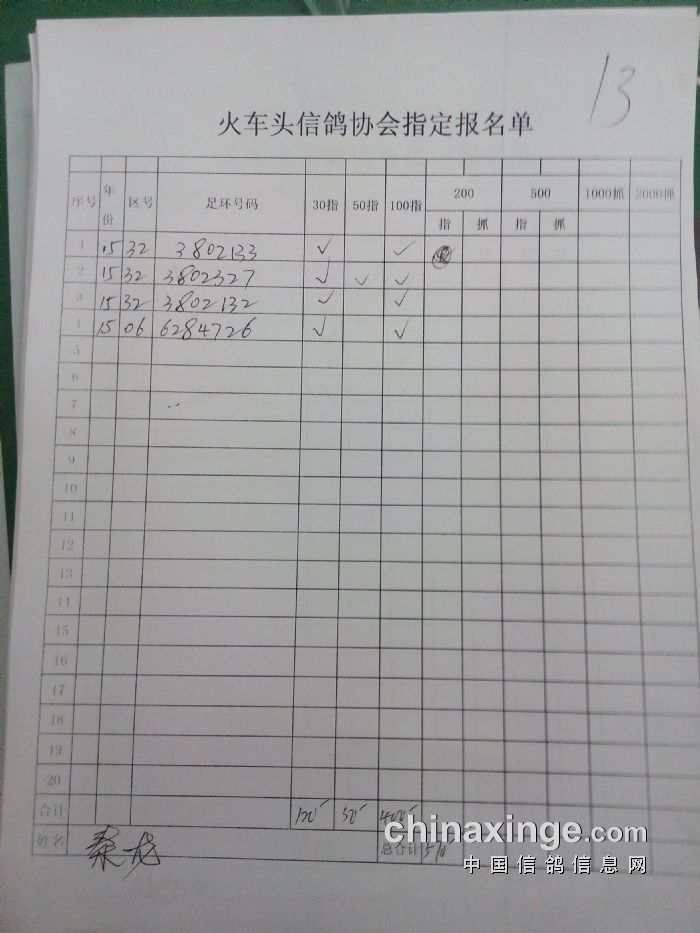 13
火车头信鸽协会指定报名单
序号 年份 区号 足环号码 30指 50指 100指 200 500 1000抓 2000抓
指 抓 指 抓
1 15 32 3802133 ✓ ✓
2 15 32 3802327 ✓ ✓ ✓
3 15 32 3802132 ✓ ✓
4 15 06 6284726 ✓ ✓
5
6
7
8
9
10
11
12
13
14
15
16
17
18
19
20
合计 120 50 400
姓名 总合计
chinaxinge.com
中国信鸽信息网